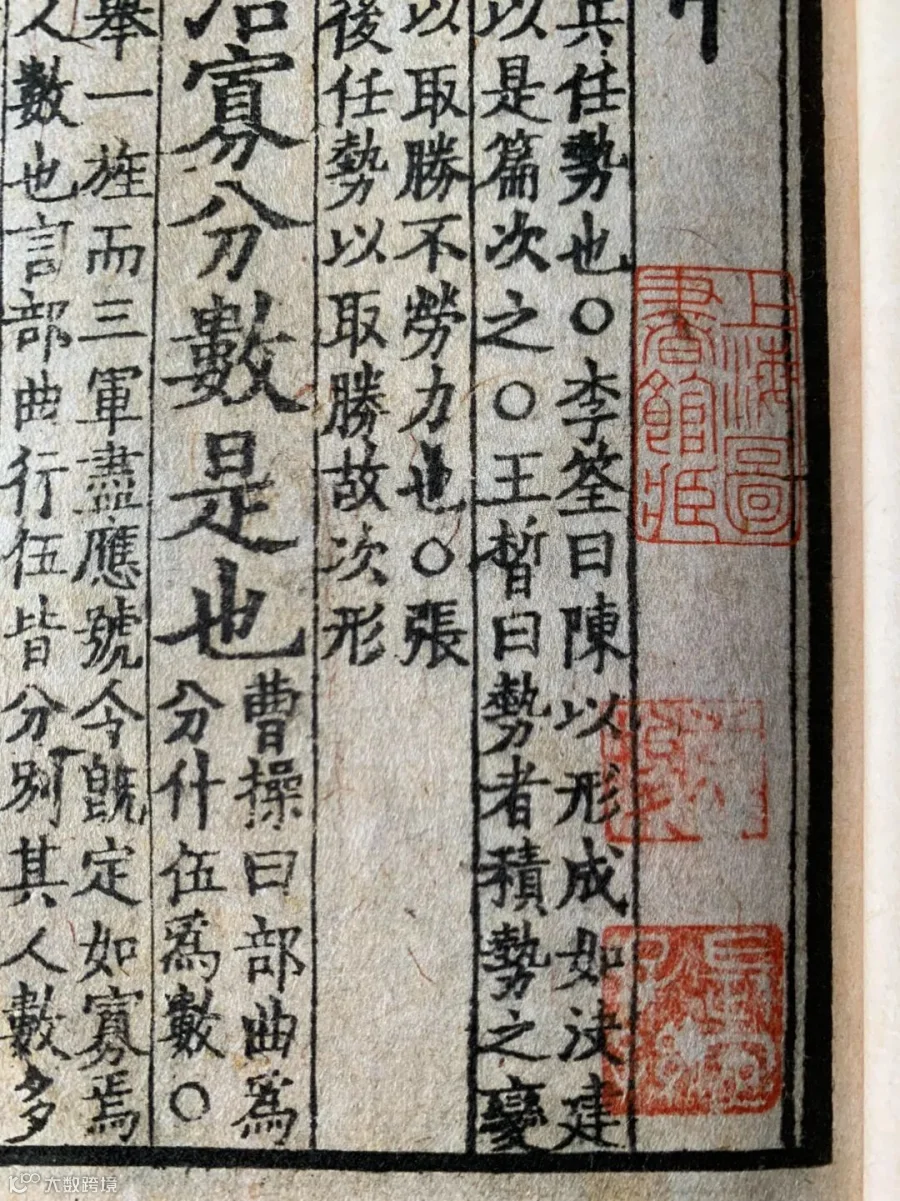 上海圖
書館
兵任勢也〇李筌曰陳以形成如決建
以是篇次之〇王晳曰勢者積勢之變
以取勝不勞力也〇張
後任勢以取勝故次形
寡分數是也
曹操曰部曲爲
分什伍爲數〇
舉一旌而三軍盡應號令既定如寡焉
人數也言部曲行伍皆分別其人數多
大数跨境